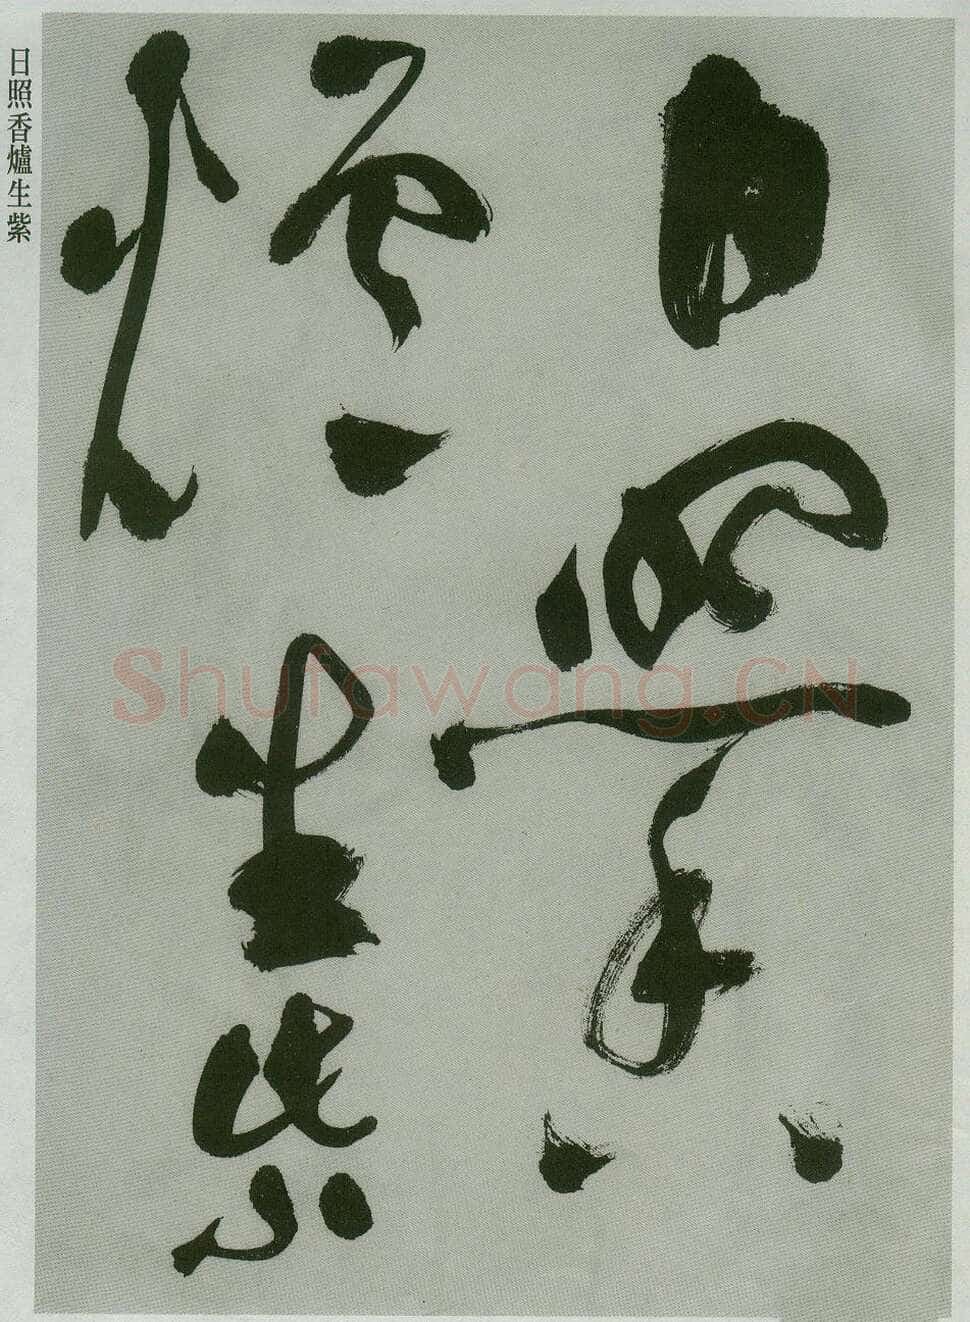 日照香
爐生紫
日照香爐生紫
Shufawang.CN